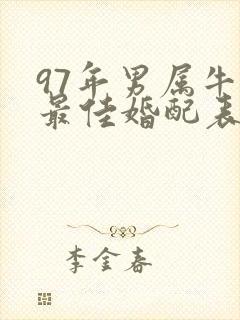 97年男属牛
最佳婚配表
李金春